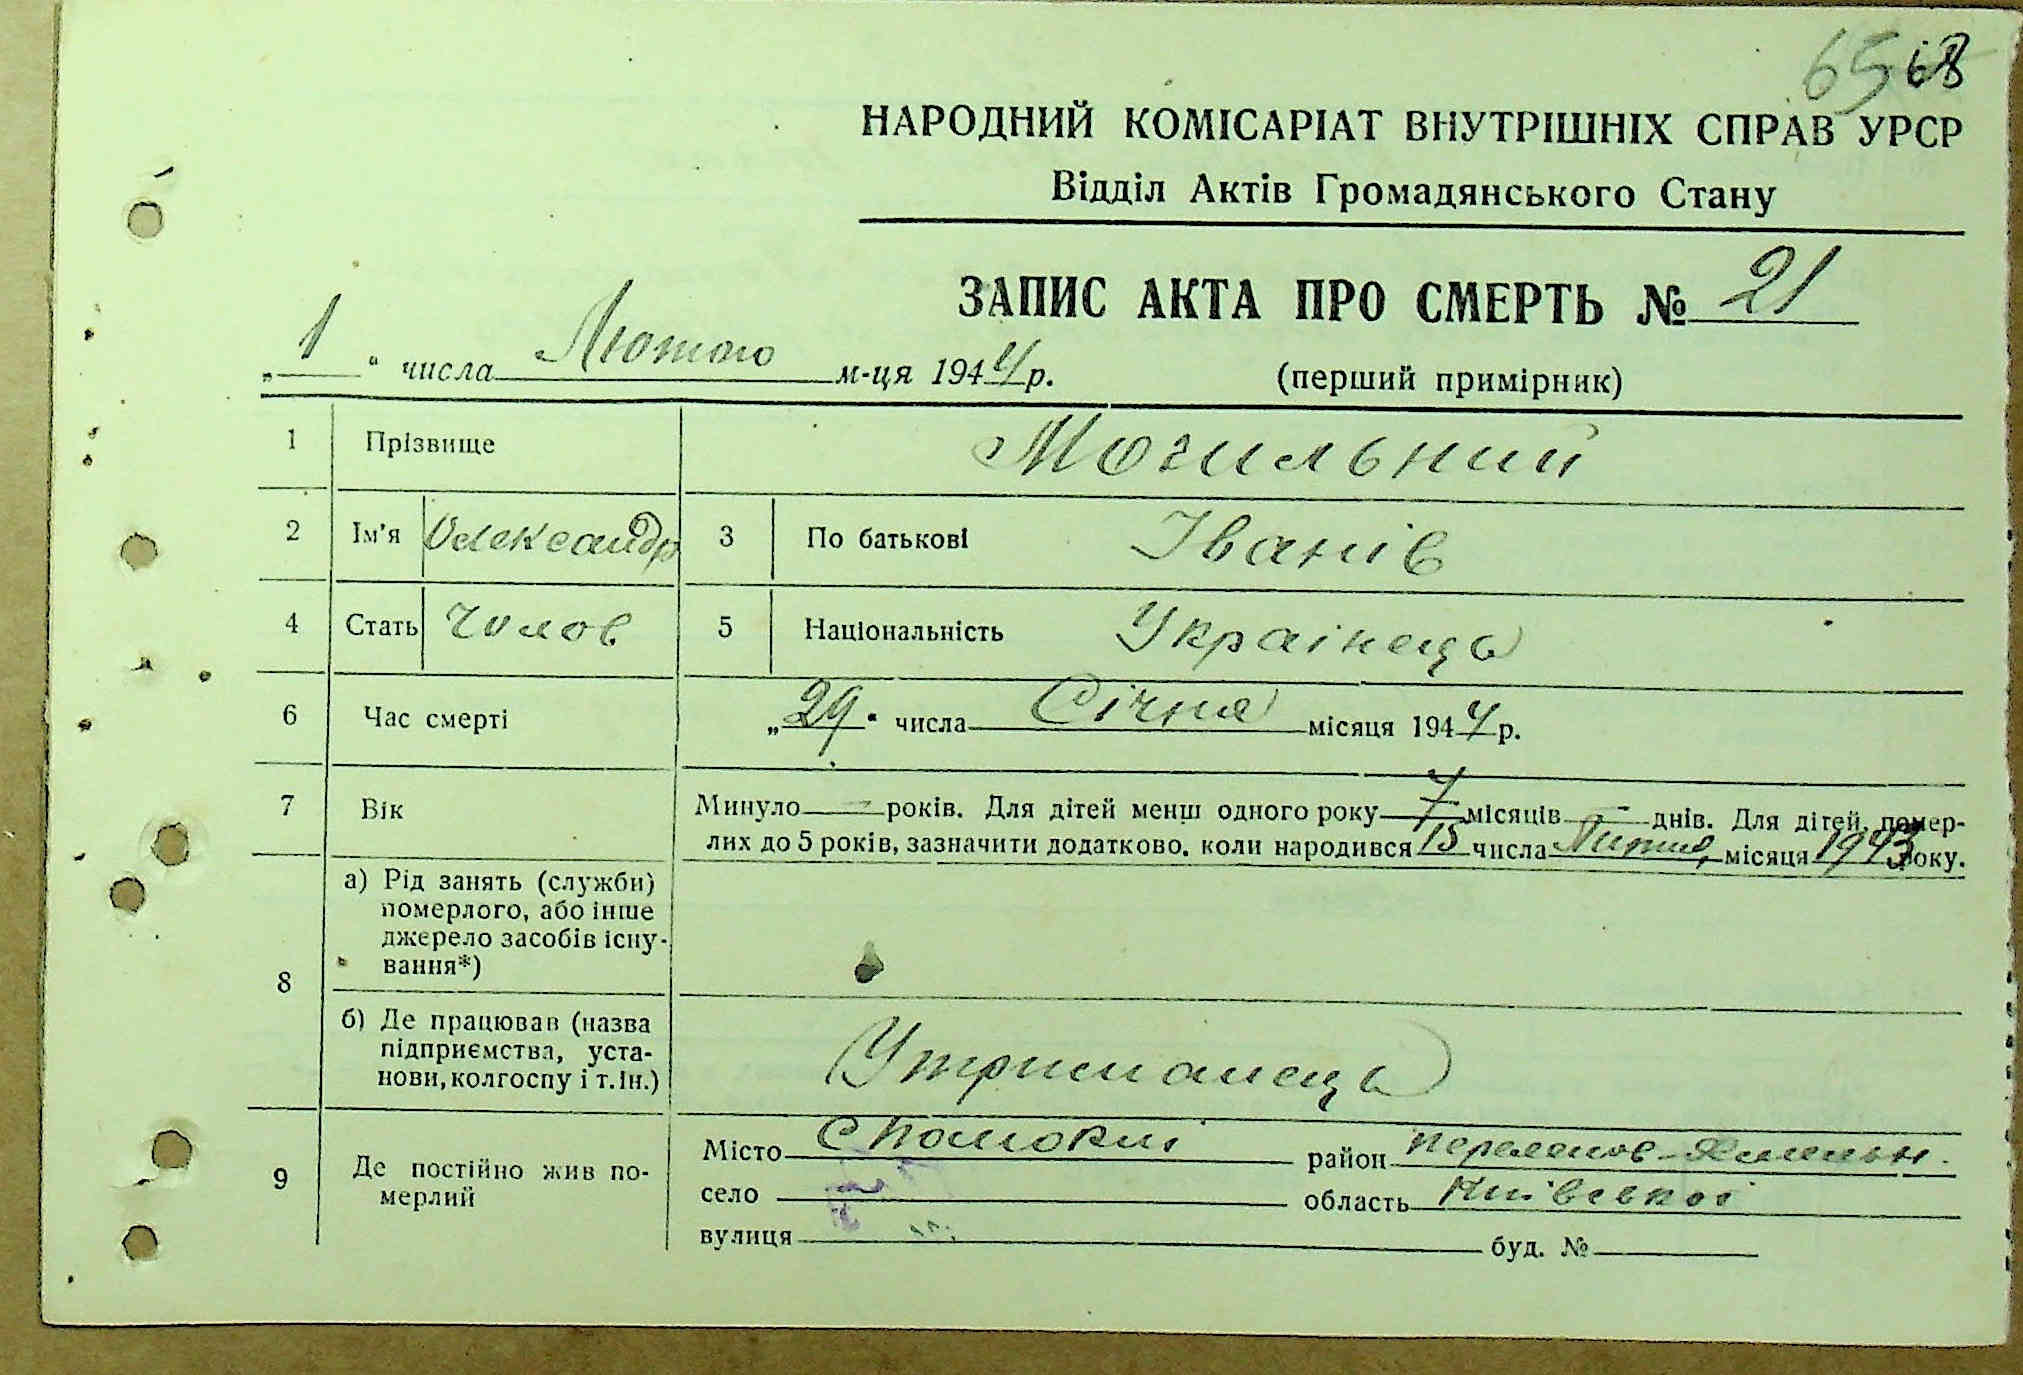 65 68
НАРОДНИЙ КОМІСАРІАТ ВНУТРІШНІХ СПРАВ УРСР
Відділ Актів Громадянського Стану
ЗАПИС АКТА ПРО СМЕРТЬ № 21
„1“ числа Лютого м-ця 1944 р.
(перший примірник)
1 Прізвище Могильний
2 Ім'я Олександр 3 По батькові Іванів
4 Стать Чолов 5 Національність Українець
6 Час смерті „29“ числа Січня місяця 1944 р.
7 Вік Минуло — років. Для дітей менш одного року 7 місяців — днів. Для дітей, помер-
лих до 5 років, зазначити додатково, коли народився 15 числа Липня місяця 1943 року.
8 а) Рід занять (служби)
померлого, або інше
джерело засобів існу-
вання*)
б) Де працював (назва
підприємства, уста-
нови, колгоспу і т.ін.)
Утриманець
9 Де постійно жив по-
мерлий
Місто с район Переяслов-Хмельн.
село область Київської
вулиця буд. №